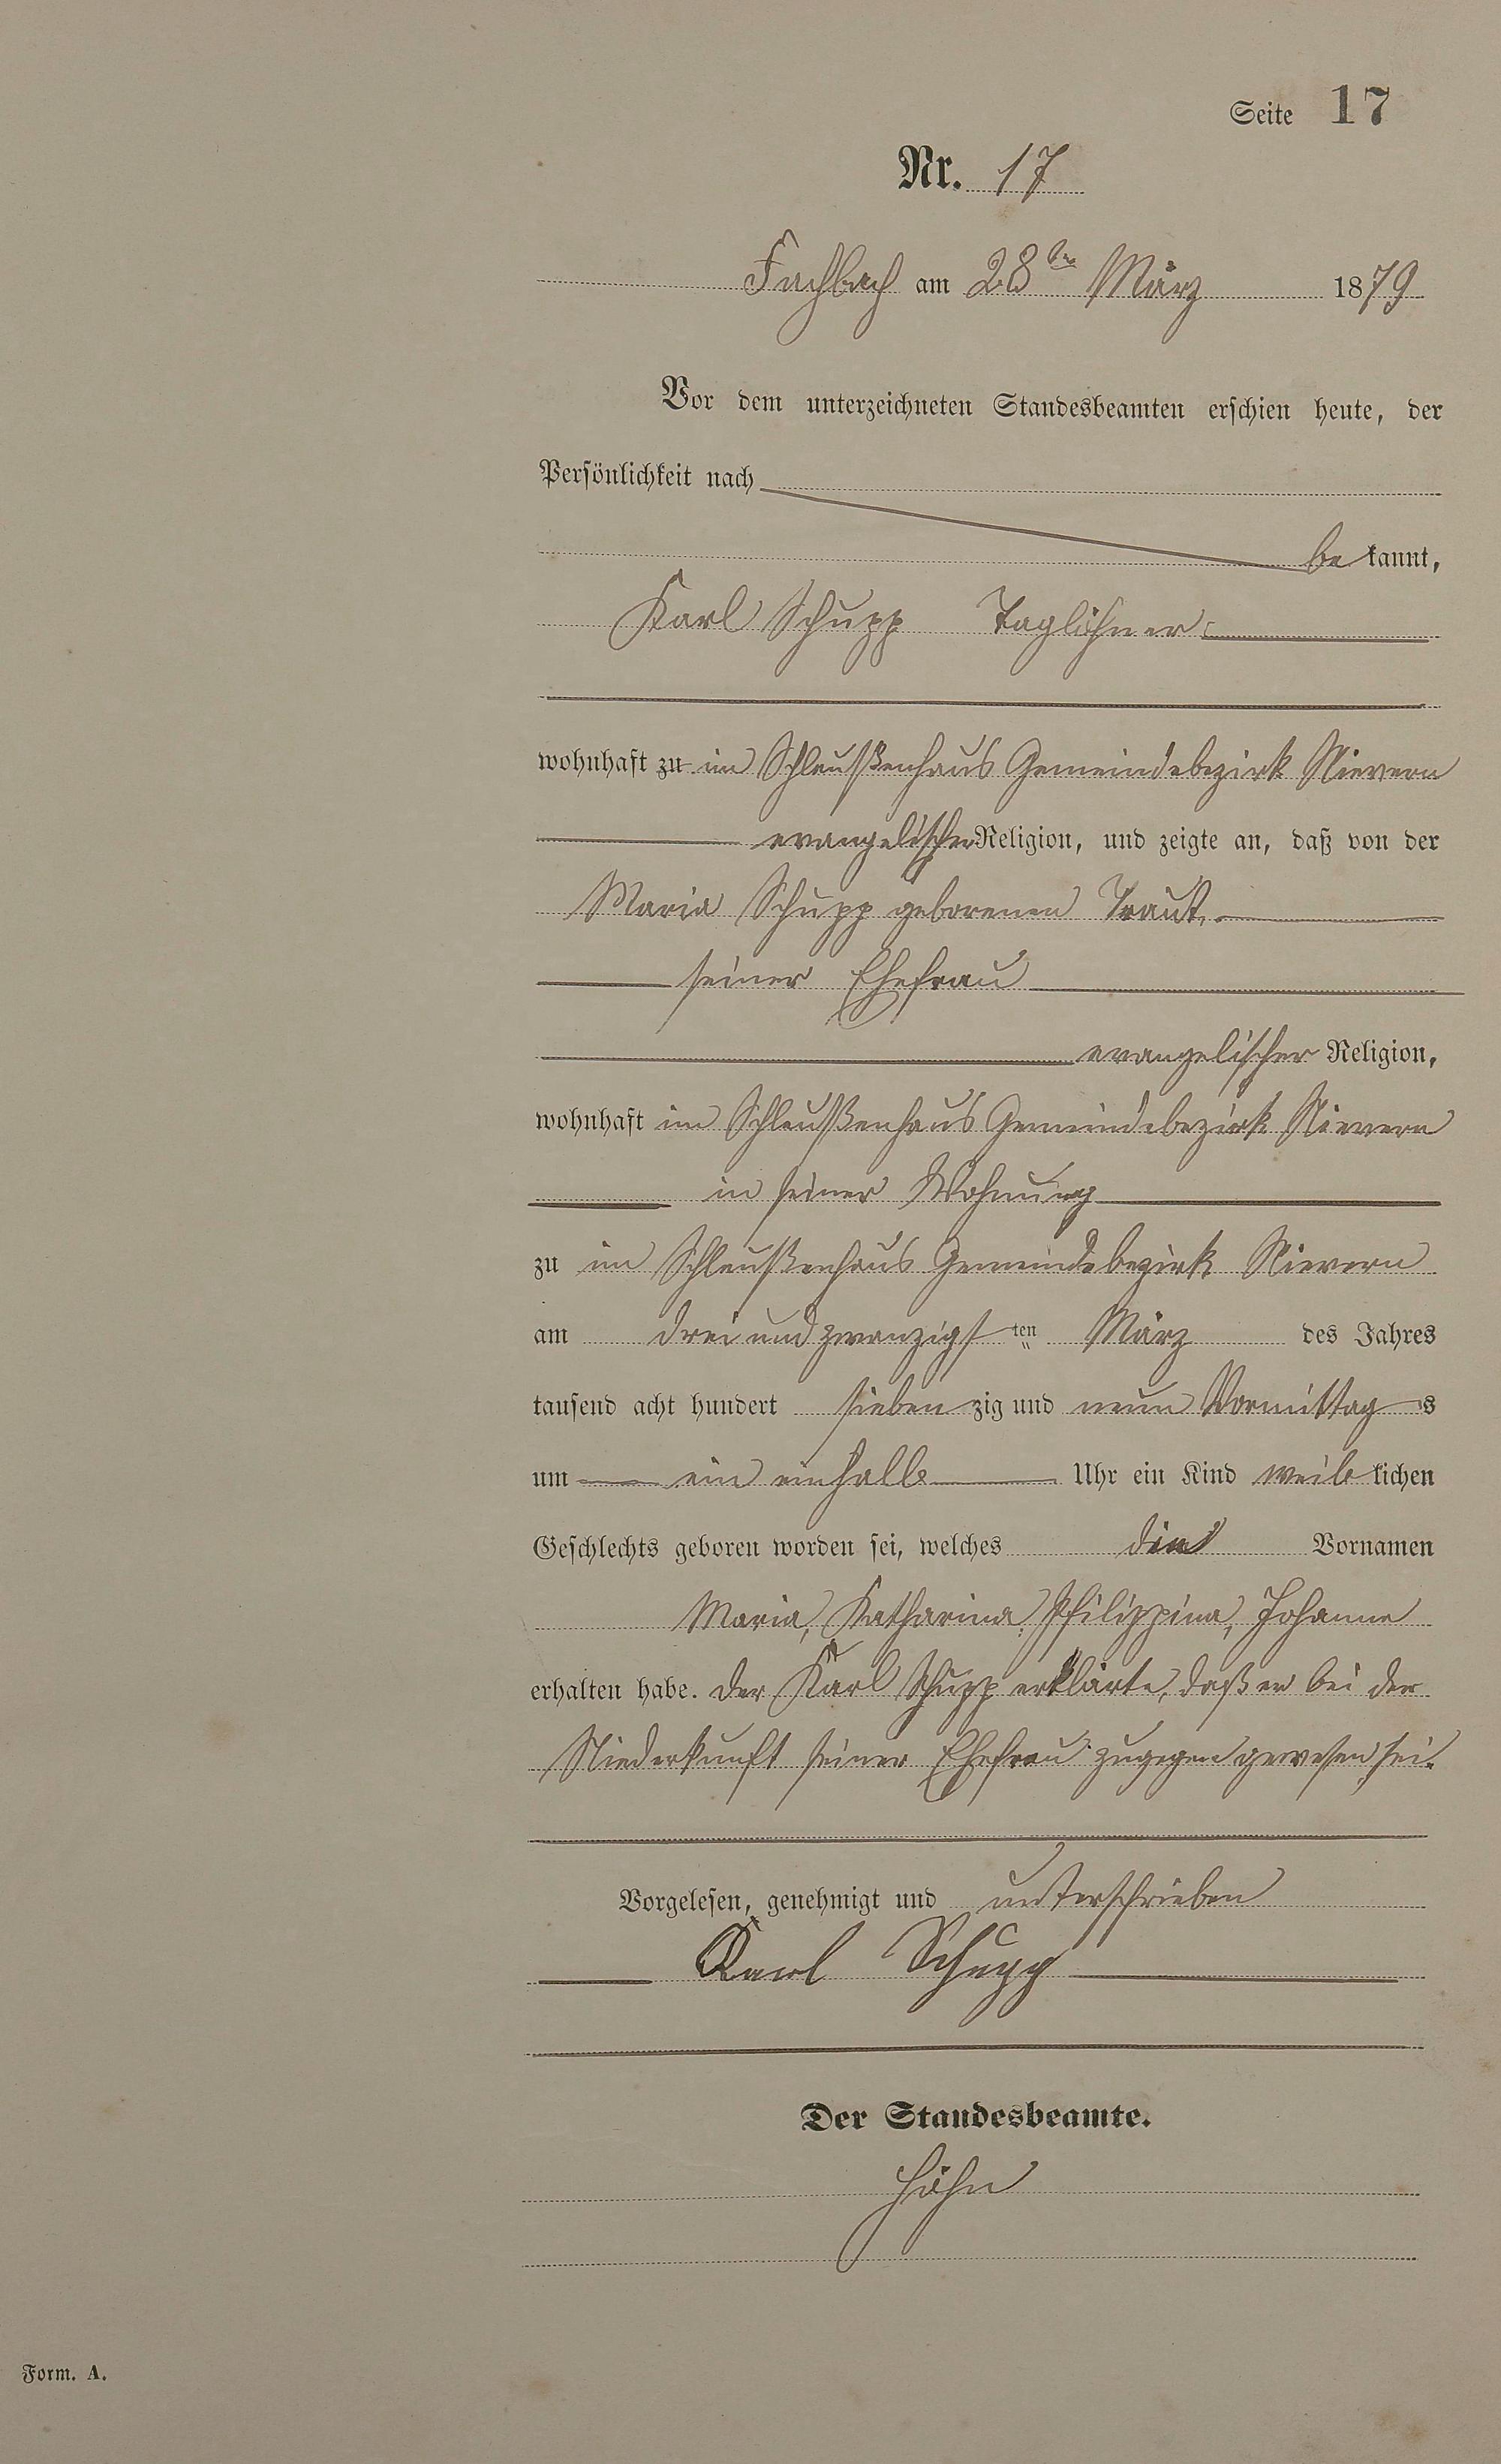 Seite 17
Nr. 17
Fachbach am 28ten März 1879
Vor dem unterzeichneten Standesbeamten erschien heute, der
Persönlichkeit nach
bekannt,
Karl Schupp Taglöhner
wohnhaft zu im Schleußenhaus Gemeindebezirk Nievern
evangelischer Religion, und zeigte an, daß von der
Maria Schupp geborenen Traut,
seiner Ehefrau
evangelischer Religion,
wohnhaft im Schleußenhaus Gemeindebezirk Nievern
in seiner Wohnung
zu im Schleußenhaus Gemeindebezirk Nievern
am dreiundzwanzigsten März des Jahres
tausend acht hundert siebenzig und neun Vormittags
um ein einhalb Uhr ein Kind weiblichen
Geschlechts geboren worden sei, welches die Vornamen
Maria, Katharina, Philippina, Johanne
erhalten habe. Der Karl Schupp erklärte, daß er bei der
Niederkunft seiner Ehefrau zugegen gewesen sei.
Vorgelesen, genehmigt und unterschrieben
Karl Schupp
Der Standesbeamte.
Höhn
Form. A.